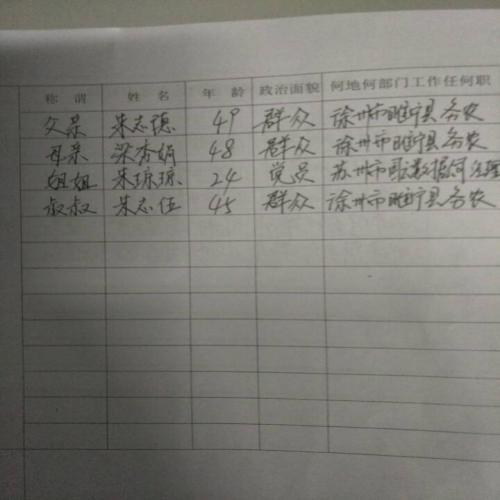 称谓 姓名 年龄 政治面貌 何地何部门工作任何职
父亲 朱志德 49 群众 徐州市睢宁县务农
母亲 梁秀娟 48 群众 徐州市睢宁县务农
姐姐 朱琼琼 24 党员 苏州市
叔叔 朱志伍 45 群众 徐州市睢宁县务农